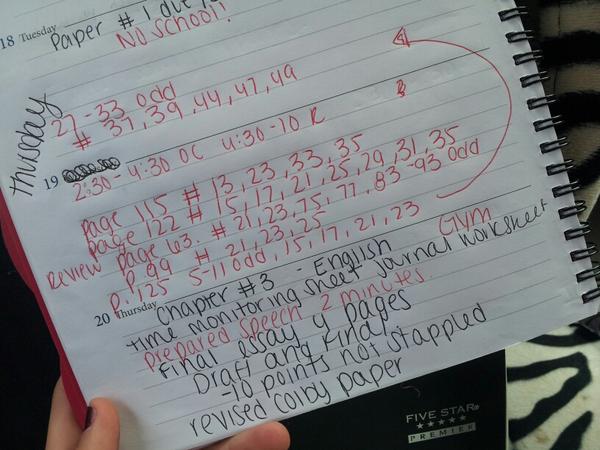 18 Tuesday
Paper # 1 due
No school!
Thursday
27-33 odd
# 37, 39, 44, 47, 49
19
2:30-4:30 OC 4:30-10 R
page 115 # 13, 23, 33, 35
page 122 # 15, 17, 21, 25, 29, 31, 35
Review page 63. # 21, 23, 75, 77, 83-93 odd
p. 99 # 21, 23, 25
p. 125 5-11 odd, 15, 17, 21, 23
Gym
20 Thursday
Chapter #3 - English
time monitoring sheet journal worksheet
prepared speech 2 minutes
Final essay 4 pages
Draft and Final
-10 points not stappled
revised Colby paper
FIVE STAR
PREMIER